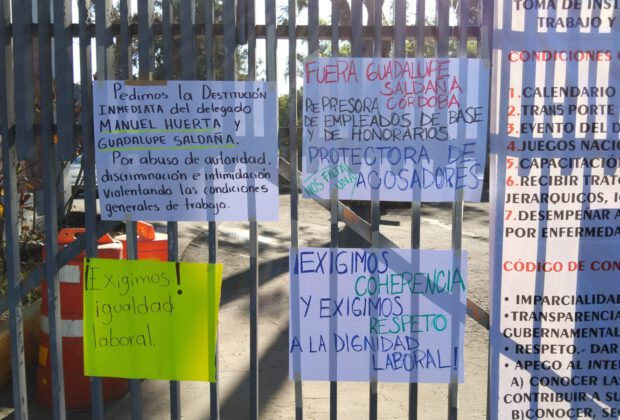 Pedimos la Destitución
inmediata del delegado
Manuel Huerta y
Guadalupe Saldaña.
Por abuso de autoridad,
discriminación e intimidación
violentando las condiciones
generales de trabajo.
Fuera Guadalupe
Saldaña
Córdoba
Represora
de empleados de base
y de honorarios.
Protectora de
acosadores
Nos falta
una
¡Exigimos!
igualdad
laboral.
¡Exigimos
coherencia
y exigimos
respeto
a la dignidad
laboral!
TOMA DE
TRABAJO Y
CONDICIONES
1.CALENDARIO
2.TRANS PORTE
3.EVENTO DEL
4.JUEGOS
5.CAPACITACIÓN
6.RECIBIR
JERARQUICOS,
7.DESEMPEÑAR A
POR
CÓDIGO DE
• IMPARCIALIDAD
•TRANSPARENCIA
• RESPETO.- DAR
• APEGO AL
A) CONOCER
CONTRIBUIR A
B) CONOCER,